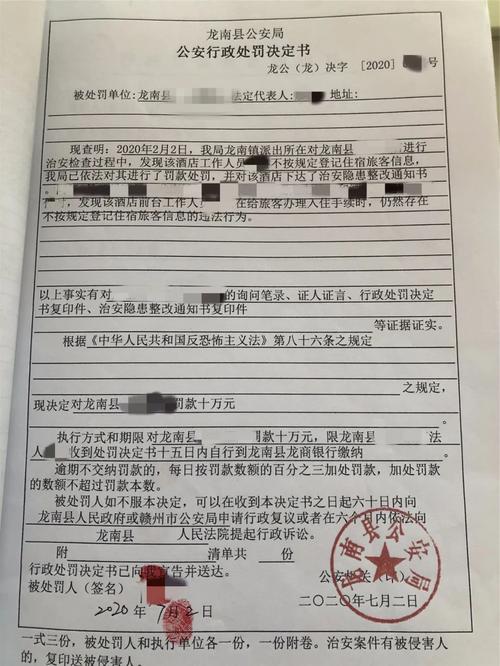 龙南县公安局
公安行政处罚决定书
龙公（龙）决字 [2020] 号
被处罚单位:龙南县 法定代表人: 地址:
现查明: 2020年2月2日, 我局龙南镇派出所在对龙南县 进行
治安检查过程中, 发现该酒店工作人员 不按规定登记住宿旅客信息,
我局已依法对其进行了罚款处罚, 并对该酒店下达了治安隐患整改通知书
, 发现该酒店前台工作人 在给旅客办理入住手续时, 仍然存在
不按规定登记住宿旅客信息的违法行为。
以上事实有对 的询问笔录、证人证言、行政处罚决定
书复印件、治安隐患整改通知书复印件
等证据证实。
根据《中华人民共和国反恐怖主义法》第八十六条之规定
之规定,
现决定对龙南县 罚款十万元
执行方式和期限 对龙南县 罚款十万元, 限龙南县 法
人 收到处罚决定书十五日内自行到龙南县龙商银行缴纳 。
逾期不交纳罚款的, 每日按罚款数额的百分之三加处罚款, 加处罚款
的数额不超过罚款本数。
被处罚人如不服本决定, 可以在收到本决定书之日起六十日内向
龙南县人民政府或赣州市公安局申请行政复议或者在六个月内依法向
龙南县 人民法院提起行政诉讼。
附 清单共 份
行政处罚决定书已向我宣告并送达。
被处罚人（签名） 公安机关（印）
2020年7月2日 二〇二〇年七月二日
龙南县公安局
一式三份, 被处罚人和执行单位各一份, 一份附卷。治安案件有被侵害人
的, 复印送被侵害人。